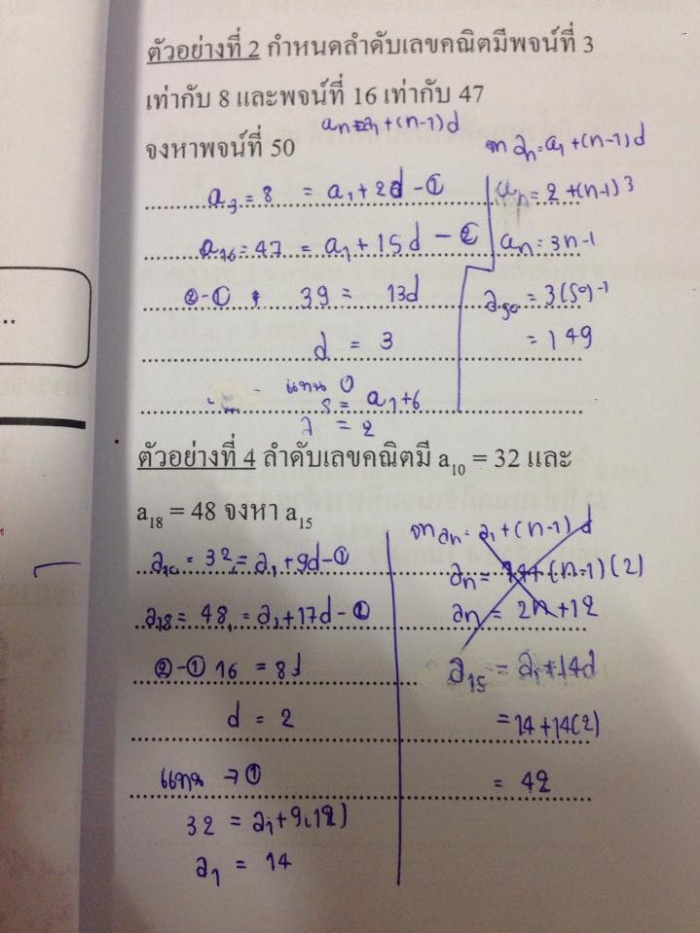 ตัวอย่างที่ 2 กำหนดลำดับเลขคณิตมีพจน์ที่ 3
เท่ากับ 8 และพจน์ที่ 16 เท่ากับ 47
จงหาพจน์ที่ 50
an=a1+(n-1)d
a3=8 = a1+2d -①
a16=47 = a1+15d -②
②-① 39 = 13d
d = 3
แทน ①
8 = a1+6
a = 2
จาก an=a1+(n-1)d
an=2+(n-1)3
an=3n-1
a50=3(50)-1
=149
ตัวอย่างที่ 4 ลำดับเลขคณิตมี a10 = 32 และ
a18 = 48 จงหา a15
a10=32=a1+9d-①
a18=48=a1+17d-②
②-① 16 = 8d
d = 2
แทน →①
32 = a1+9(2)
a1 = 14
จาก an=a1+(n-1)d
an=14+(n-1)(2)
an = 2n+12
a15 = a1+14d
=14+14(2)
= 42
..